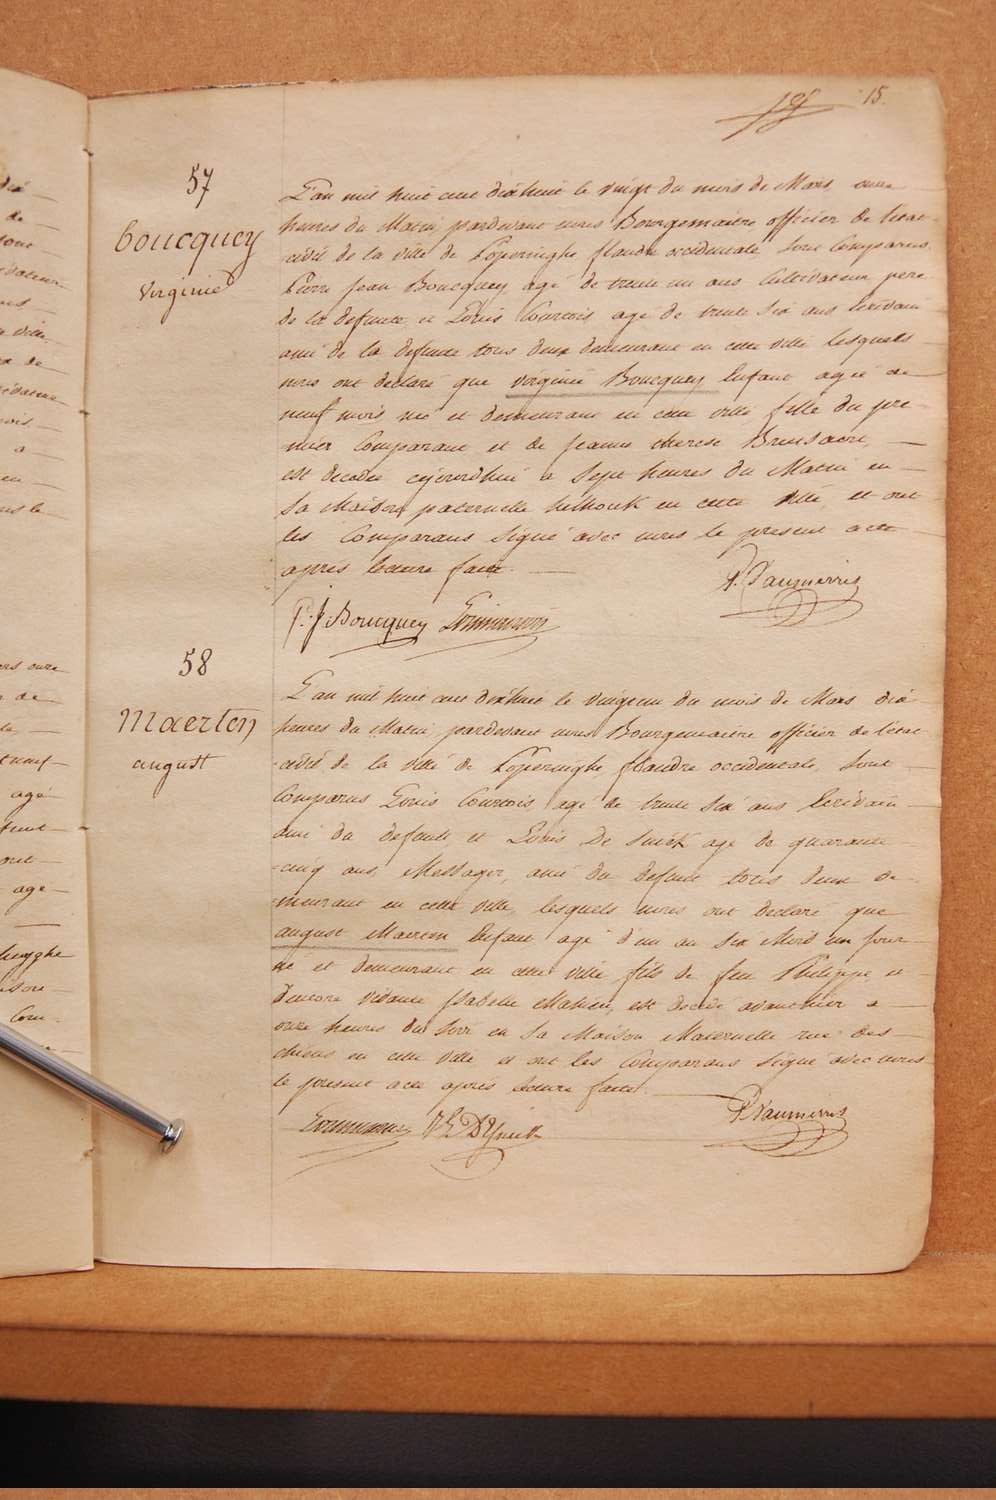 15.
57
Boucquey
Virginie
L'an mil huit cent dixhuit le vingt du mois de Mars, onze
heures du Matin, pardevant nous Bourgemaitre officier de l'etat
civil de la ville de Poperinghe flandre occidentale, sont Comparus
Pierre Jean Boucquey, agé de trente un ans Cultivateur, pere
de la defunte, et Louis Courtois agé de trente six ans Ecrivain
ami de la defunte tous deux demeurant en cette ville, lesquels
nous ont declaré que virginie Boucquey Enfant agée de
neuf mois, né et demeurant en cette ville, fille du pre-
mier Comparant et de Jeanne therese
est decedée cejourdhui a Sept heures du Matin en
Sa Maison paternelle en cette ville, et ont
les Comparans Signé avec nous le present acte
après lecture faite.
P. J. Boucquey
58
Maerten
august
L'an mil huit cent dixhuit le vingt un du mois de Mars dix
heures du Matin, pardevant nous Bourgemaitre officier de l'etat
civil de la ville de Poperinghe flandre occidentale, Sont
Comparus Louis Courtois, agé de trente six ans Ecrivain
ami du defunt, et Louis De agé de quarante
cinq ans, Messager, ami du defunt tous deux de-
meurant en cette ville, lesquels nous ont declaré que
august Maerten Enfant agé d'un an six Mois un jour
né et demeurant en cette ville, fils de feu Philippe, et
d'encore vivante Isabelle Mahieu, est decedé avant hier a
onze heures du soir en Sa Maison Maternelle rue des
chiens en cette ville et ont les Comparans Signé avec nous
le present acte après lecture faite.